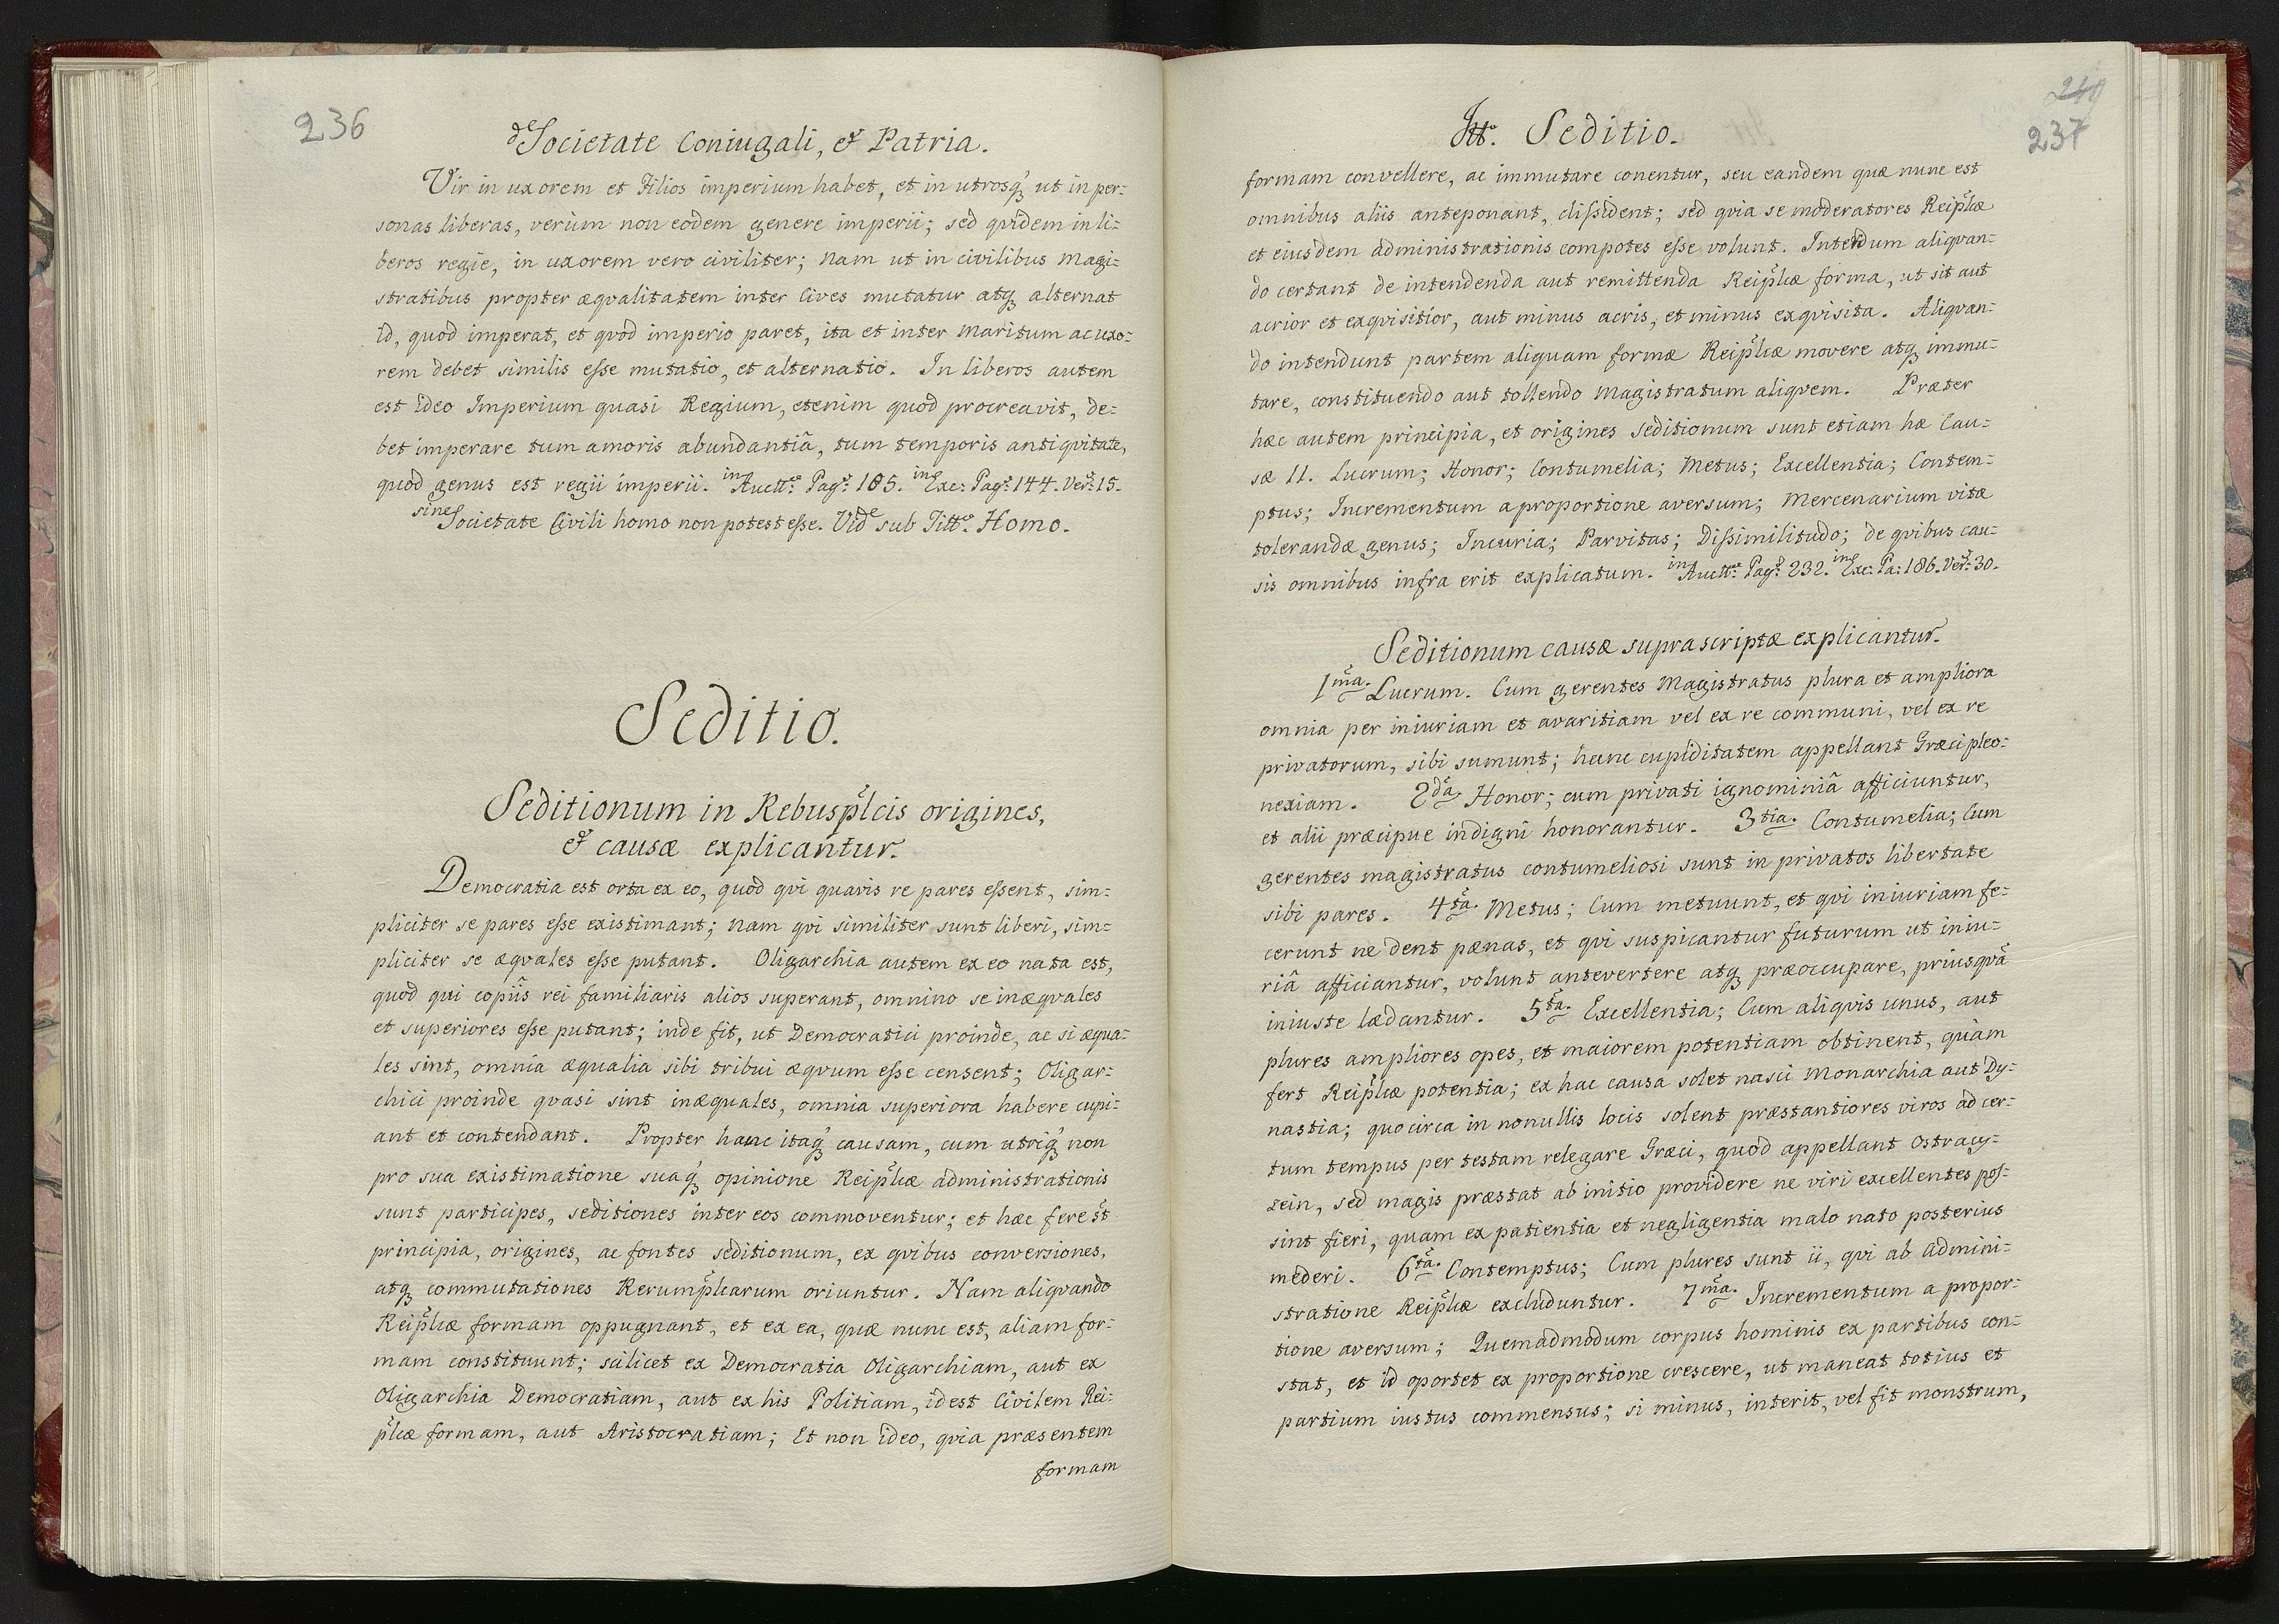 236
de Societate Coniugali, et Patria.
Vir in uxorem et Filios imperium habet, et in utrosq́ ut in per:
sonas liberas, verùm non eodem genere imperii; sed qvidem in li:
beros regie, in uxorem vero civiliter; Nam ut in civilibus Magi:
stratibus propter æqvalitatem inter Cives mutatur atq alternat
id, quod imperat, et qvod imperio paret, ita et inter Maritum ac uxo:
rem debet similis esse mutatio, et alternatio. In liberos autem
est ideo Imperium quasi Regium, etenim quod procreavit, de:
bet imperare tum amoris abundantiâ, tum temporis antiqvitate,
quod genus est regii imperii. in Auctte: Pagã: 185. in Exe: Pagã: 144. Verũ: 15.
sine Societate Civili homo non potest esse. Vide sub Titto. Homo.
Seditio.
Seditionum in Rebuspl̃cis origines,
et causæ explicantur.
Democratia est orta ex eo, quod qvi quavis re pares essent, sim:
pliciter se pares esse existimant; Nam qvi similiter sunt liberi, sim:
pliciter se æqvales esse putant. Oligarchia autem ex eo nata est,
quod qui copiis rei familiaris alios superant, omnino se inæqvales
et superiores esse putant; inde fit, ut Democratici proinde, ac si æqua:
les sint, omnia æqualia sibi tribui æqvum esse censent; Oligar:
chici proinde qvasi sint inæquales, omnia superiora habere cupi:
ant et contendant. Propter hanc itaq́ causam, cum utriq́ non
pro sua existimatione suaq́ opinione Reipl̃cæ administrationis
sunt participes, seditiones inter eos commoventur; et hæc fere st̃
principia, origines, ac fontes seditionum, ex qvibus conversiones,
atq commutationes Rerumpl̃carum oriuntur. Nam aliqvando
Reipl̃cæ formam oppugnant, et ex ea, quæ nunc est, aliam for:
mam constituunt; scilicet ex Democratia Oligarchiam, aut ex
Oligarchia Democratiam, aut ex his Politiam, idest Civilem Rei:
pl̃cæ formam, aut Aristocratiam; Et non ideo, qvia præsentem
formam
249
237
Titto. Seditio.
formam convellere, ac immutare conentur, seu eandem quæ nunc est
omnibus aliis anteponant, dissident; sed qvia se moderatores Reipl̃cæ
et eiusdem administrationis compotes esse volunt. Interdum aliqvan:
do certant de intendenda aut remittenda Reipl̃cæ forma, ut sit aut
acrior et exqvisitior, aut minus acris, et minus exqvisita. Aliqvan:
do intendunt partem aliquam formæ Reipl̃cæ movere atq immu:
tare, constituendo aut tollendo Magistratum aliqvem. Præter
hæc autem principia, et origines seditionum sunt etiam hæ Cau:
sæ 11. Lucrum; Honor; Contumelia; Metus; Excellentia; Contem:
ptus; Incrementum a proportione aversum; Mercenarium vitæ
tolerandæ genus; Incuria; Parvitas; Dissimilitudo; de qvibus cau:
sis omnibus infra erit explicatum. in Auctte: Pagã: 232. in Exe: Pa: 186. Verũ: 30.
Seditionum causæ suprascriptæ explicantur.
1ma. Lucrum. Cum gerentes Magistratus plura et ampliora
omnia per iniuriam et avaritiam vel ex re communi, vel ex re
privatorum, sibi sumunt; hanc cupiditatem appellant Græci pleo:
nexiam. 2da. Honor; cum privati ignominiâ afficiuntur,
et alii præcipue indigni honorantur. 3tia. Contumelia; Cum
gerentes magistratus contumeliosi sunt in privatos libertate
sibi pares. 4ta. Metus; Cum metuunt, et qvi iniuriam fe:
cerunt ne dent pænas, et qvi suspicantur futurum ut iniu:
riâ afficiantur, volunt antevertere atq præoccupare, priusqvã
iniuste lædantur. 5ta. Excellentia; Cum aliqvis unus, aut
plures ampliores opes, et maiorem potentiam obtinent, quàm
fert Reipl̃cæ potentia; ex hac causa solet nasci Monarchia aut Dy:
nastia; quocirca in nonullis locis solent præstantiores viros ad cer:
tum tempus per testam relegare Græci, quod appellant Ostracy:
zein, sed magis præstat ab initio providere ne viri excellentes pos:
sint fieri, quam ex patientia et negligentia malo nato posterius
mederi. 6ta. Contemptus; Cum plures sunt ii, qvi ab admini:
stratione Reipl̃cæ excluduntur. 7ma. Incrementum a propor:
tione aversum; Quemadmodum corpus hominis ex partibus con:
stat, et id oportet ex proportione crescere, ut maneat totius et
partium iustus commensus; si minus, interit, vel fit monstrum,